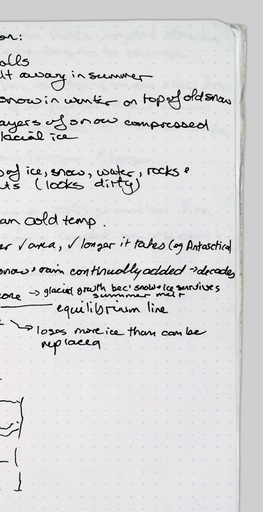 on:
alls
lt away in summer
snow in winter on top of old snow
ayers of snow compressed
lacial ice
of ice, snow, water, rocks &
ts (looks dirty)
an cold temp.
er √ area, √ longer it takes (eg Antarctica)
snow & rain continually added → decades
one → glacial growth bec' snow + ice survives
summer melt
equilibrium line
→ loses more ice than can be
replaced